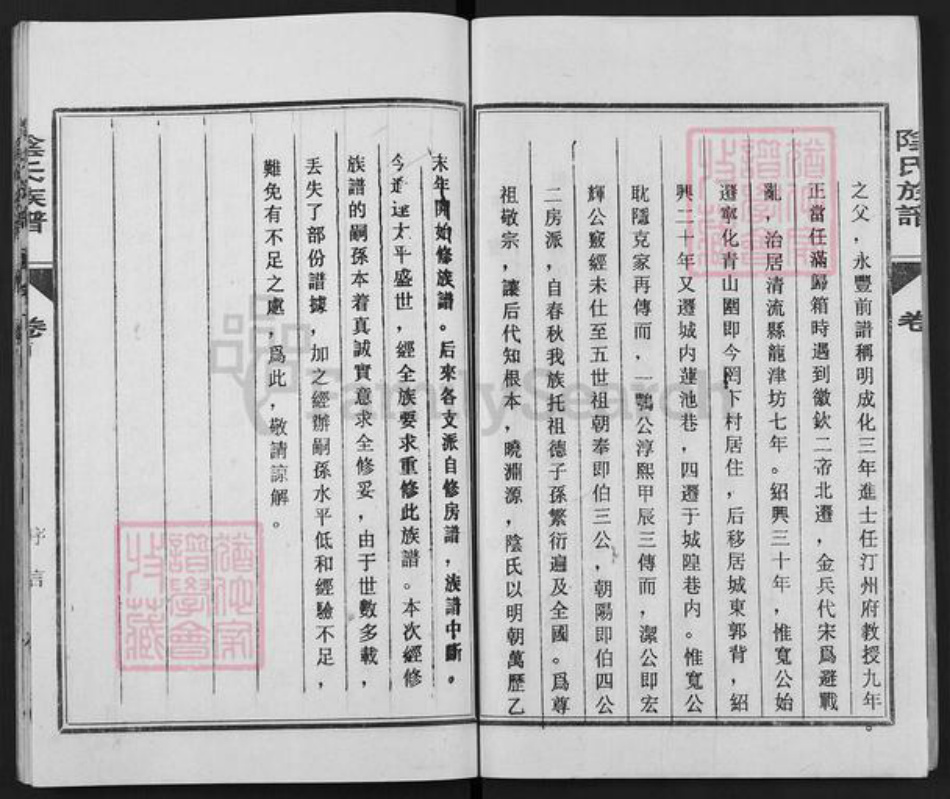 陰氏族譜
卷
之父，永豐前譜稱明成化三年進士任汀州府教授九年。
正當任滿歸箱時遇到徽欽二帝北遷，金兵代宋爲避戰
亂，治居清流縣龍津坊七年。紹興三十年，惟寬公始
遷寧化青山圍即今罔下村居住，后移居城東郭背，紹
興二十年又遷城内蓮池巷，四遷于城隍巷内。惟寬公
耽隱克家再傳而，一鶚公淳熙甲辰三傳而，潔公即宏
輝公竅經未仕至五世祖朝奉即伯三公，朝陽即伯四公
二房派，自春秋我族托祖德子孫繁衍遍及全國。爲尊
祖敬宗，讓后代知根本，曉淵源，陰氏以明朝萬歷乙
末年開始修族譜。后來各支派自修房譜，族譜中斷。
今逢逢太平盛世，經全族要求重修此族譜。本次經修
族譜的嗣孫本着真誠實意求全修妥，由于世數多載，
丟失了部份譜據，加之經辦嗣孫水平低和經驗不足，
難免有不足之處，爲此，敬請諒解。
陰氏族譜
卷
序
FamilySearch
猶他家譜學會收藏
猶他家譜學會收藏